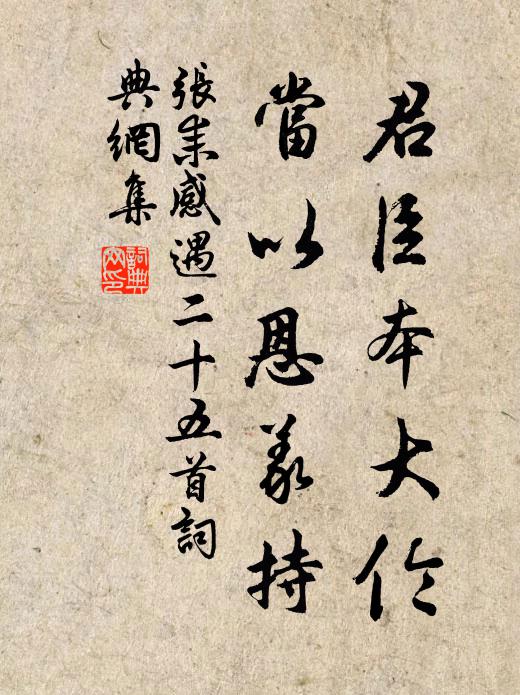 君臣本大倫
當以恩義持
張耒感遇二十五首詞
典網集
詞典
网印